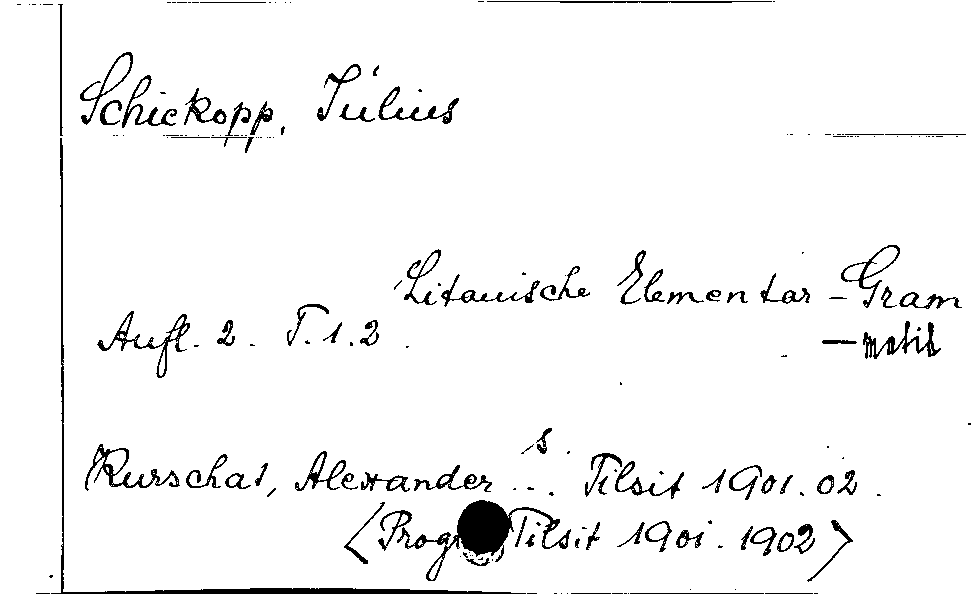 Schiekopp, Július
Litauische Elementar-Gram
Aufl. 2. T. 1. 2.
—matik
s.
Kurschat, Alexander ... Tilsit 1901.02.
<Progr Tilsit 1901. 1902>